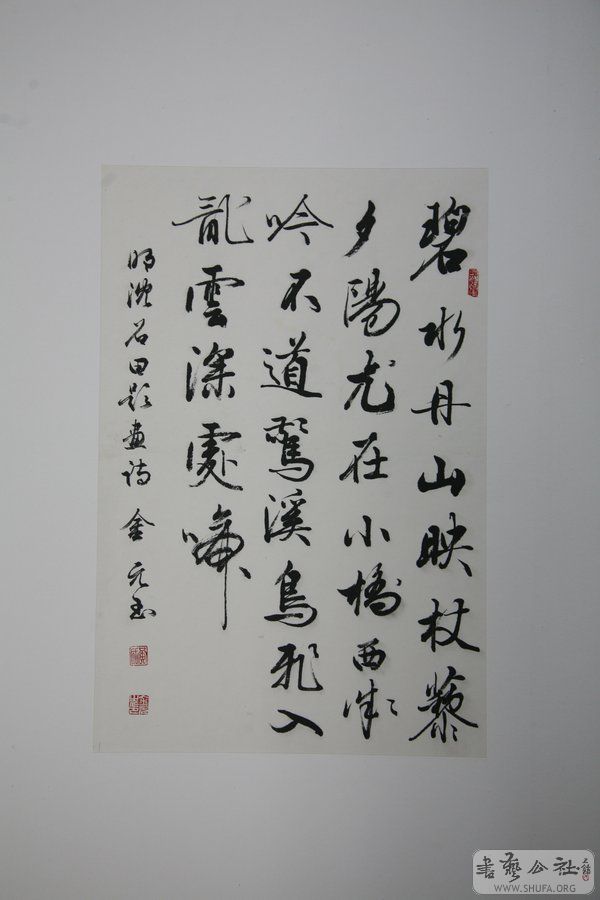 碧水丹山映杖藜
夕陽尤在小橋西微
吟不道驚溪鳥飛入
亂雲深處啼
明沈石田題畫詩 金元玉
書藝公社
WWW.SHUFA.ORG